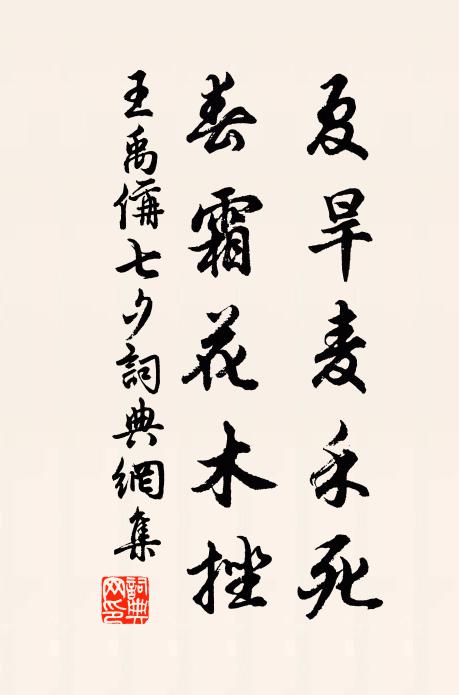 夏旱麦禾死
春霜花木挫
王禹偁七夕詞典網集
詞典網印